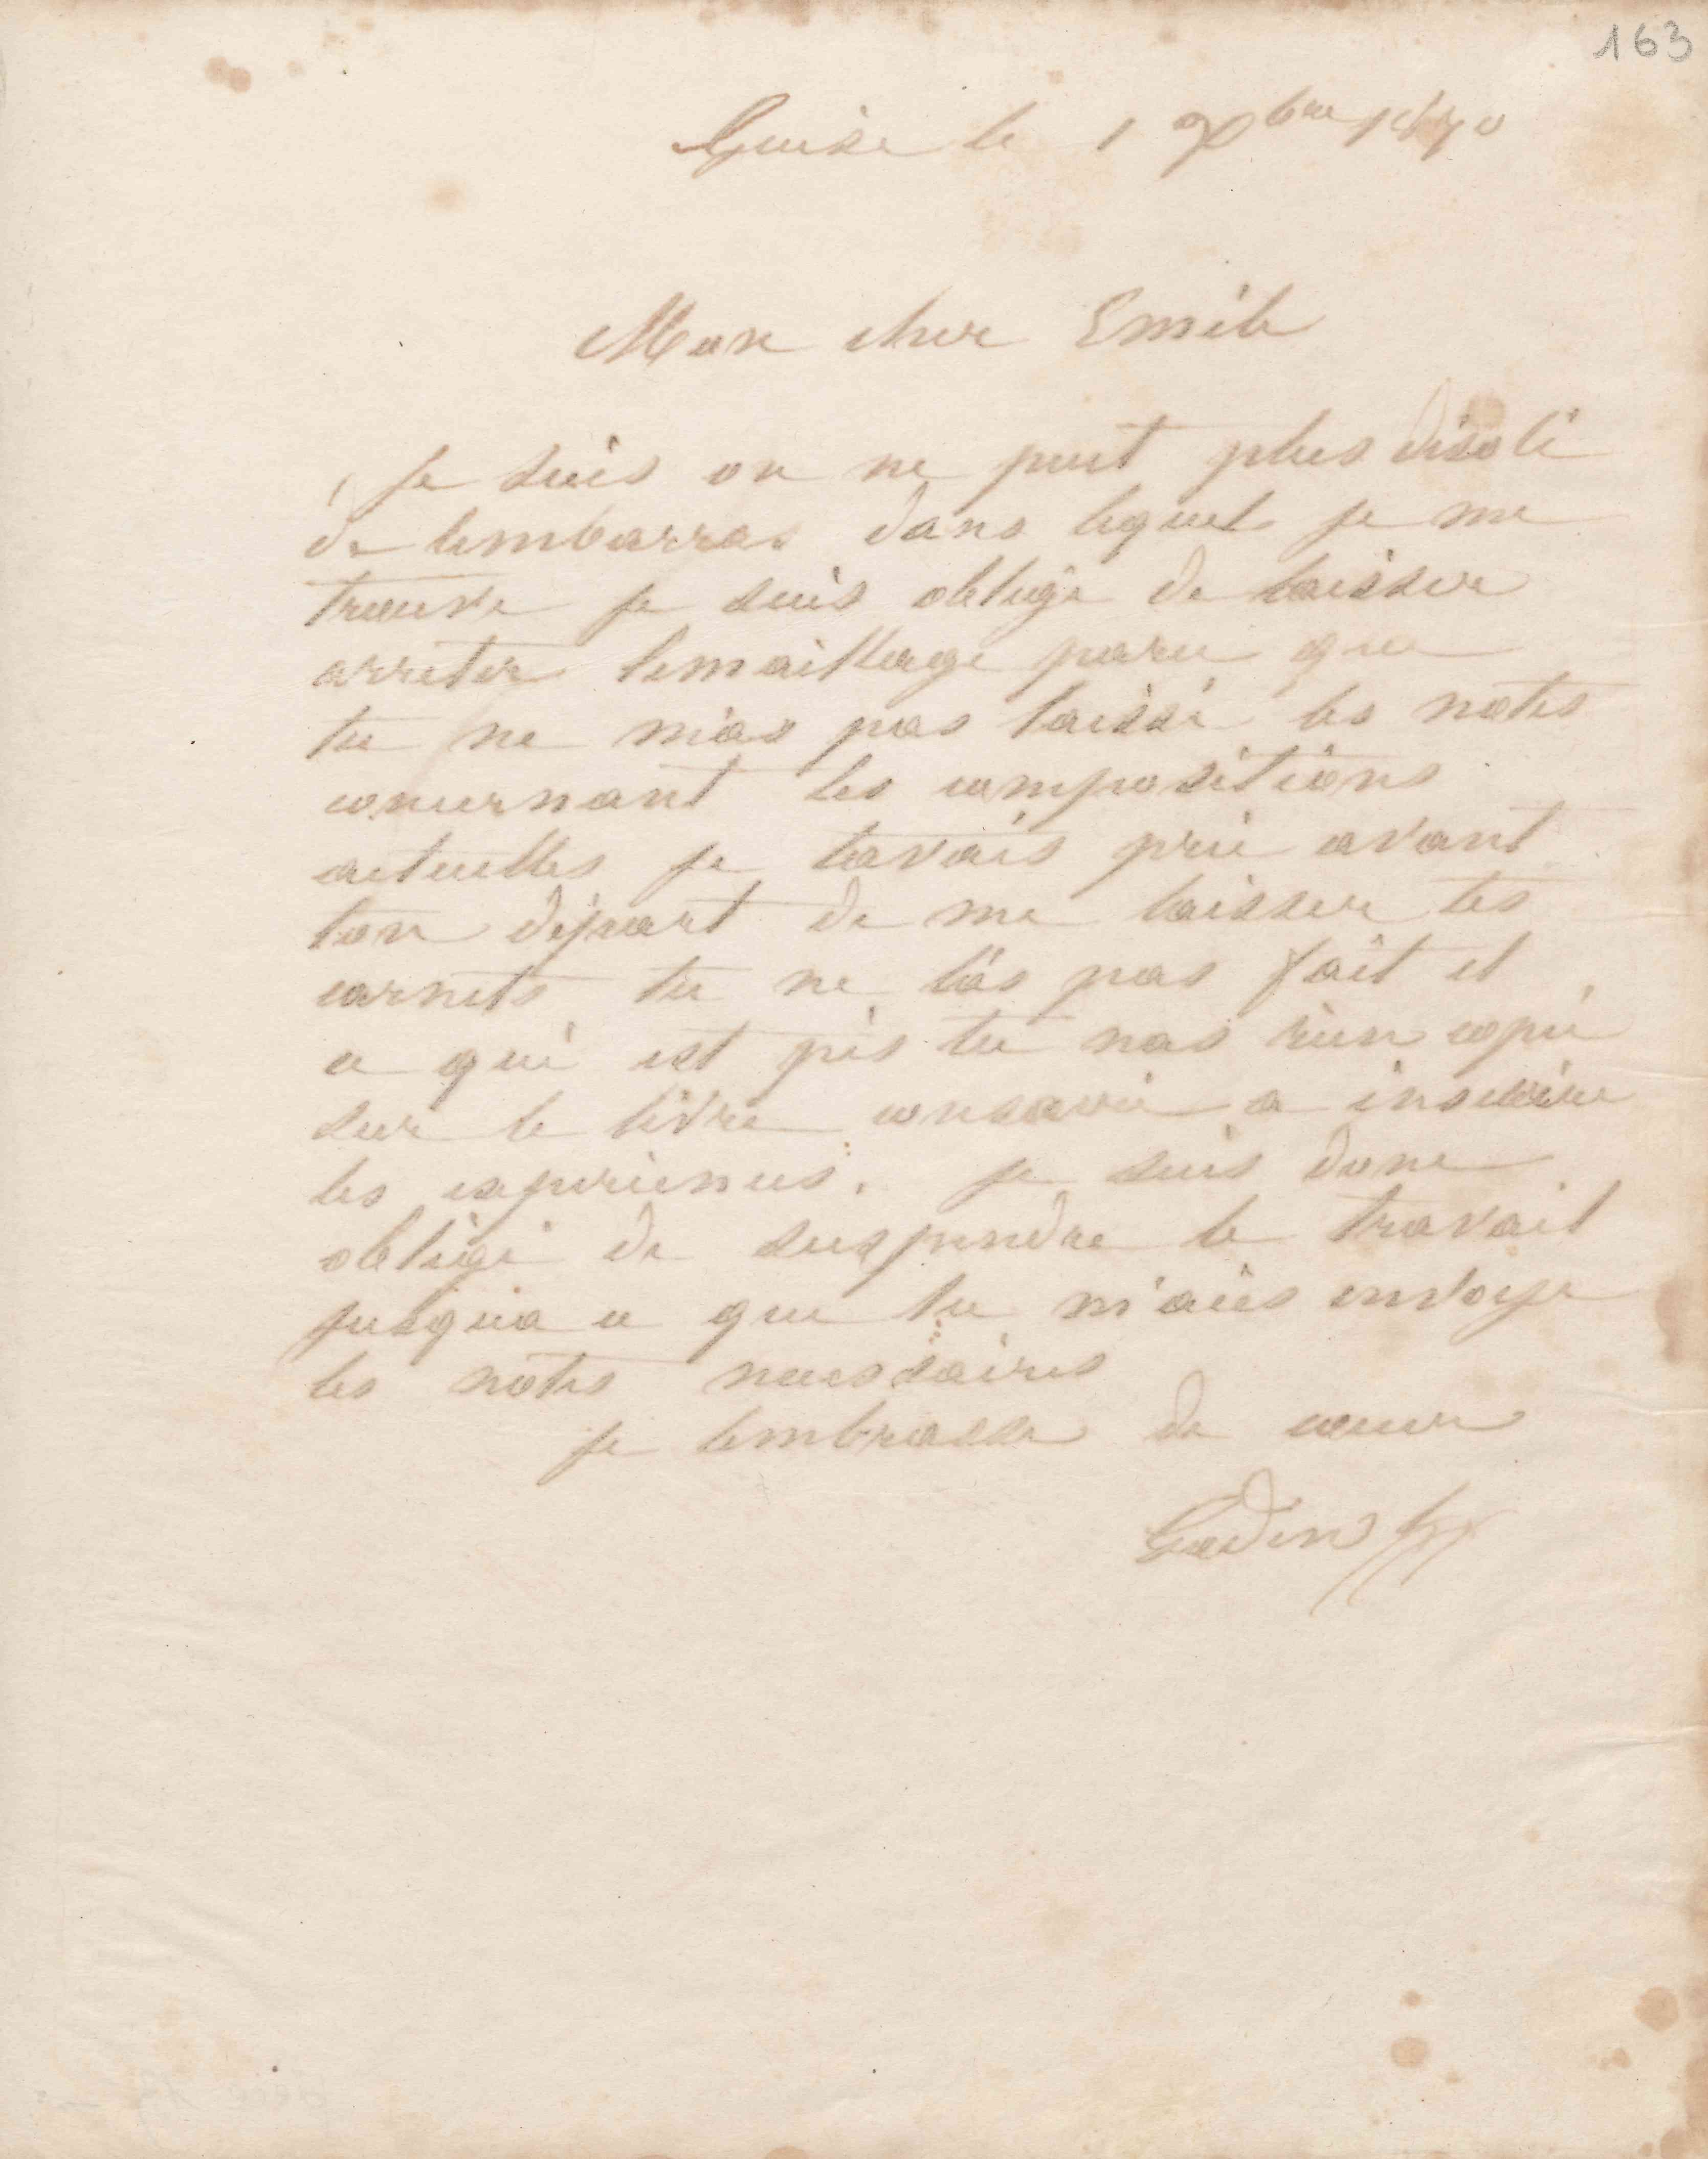 163
Guise le 1 Xbre 1870
Mon cher Emile
Je suis on ne peut plus désolé
de lembarras dans lequel je me
trouve je suis obligé de laisser
arreter lemaillage parce que
tu ne m'as pas laissé les notes
concernant les compositions
actuelles je tavais prié avant
ton départ de me laisser tes
carnets tu ne l'as pas fait et
ce qui est pis tu nas rien copié
sur le livre consacré a inscrire
les expériences. je suis donc
obligé de suspendre le travail
jusqua ce que tu m'aies envoyé
les notes necessaires
je tembrasse de cœur
Godin